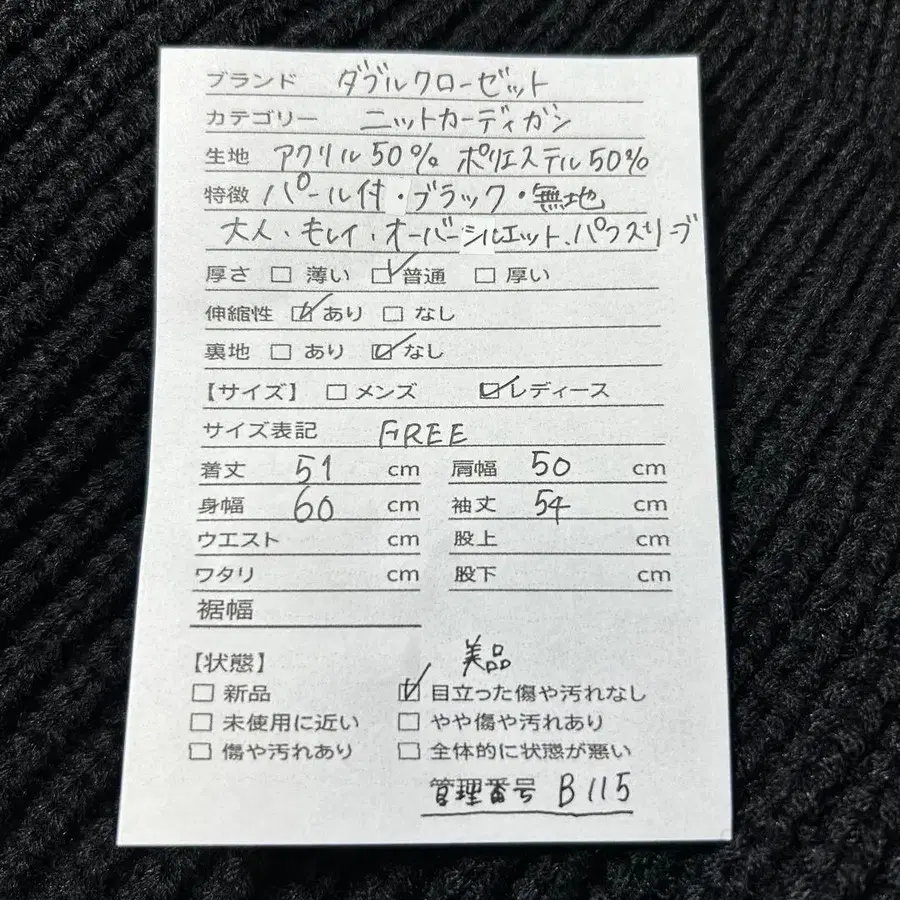 ブランド ダブルクローゼット
カテゴリー ニットカーディガン
生地 アクリル50% ポリエステル50%
特徴 パール付・ブラック・無地
大人・キレイ・オーバーシルエット、パフスリーブ
厚さ □ 薄い ☑ 普通 □ 厚い
伸縮性 ☑ あり □ なし
裏地 □ あり ☑ なし
【サイズ】 □ メンズ ☑ レディース
サイズ表記 FREE
着丈 51 cm 肩幅 50 cm
身幅 60 cm 袖丈 54 cm
ウエスト cm 股上 cm
ワタリ cm 股下 cm
裾幅
【状態】 美品
□ 新品 ☑ 目立った傷や汚れなし
□ 未使用に近い □ やや傷や汚れあり
□ 傷や汚れあり □ 全体的に状態が悪い
管理番号 B115